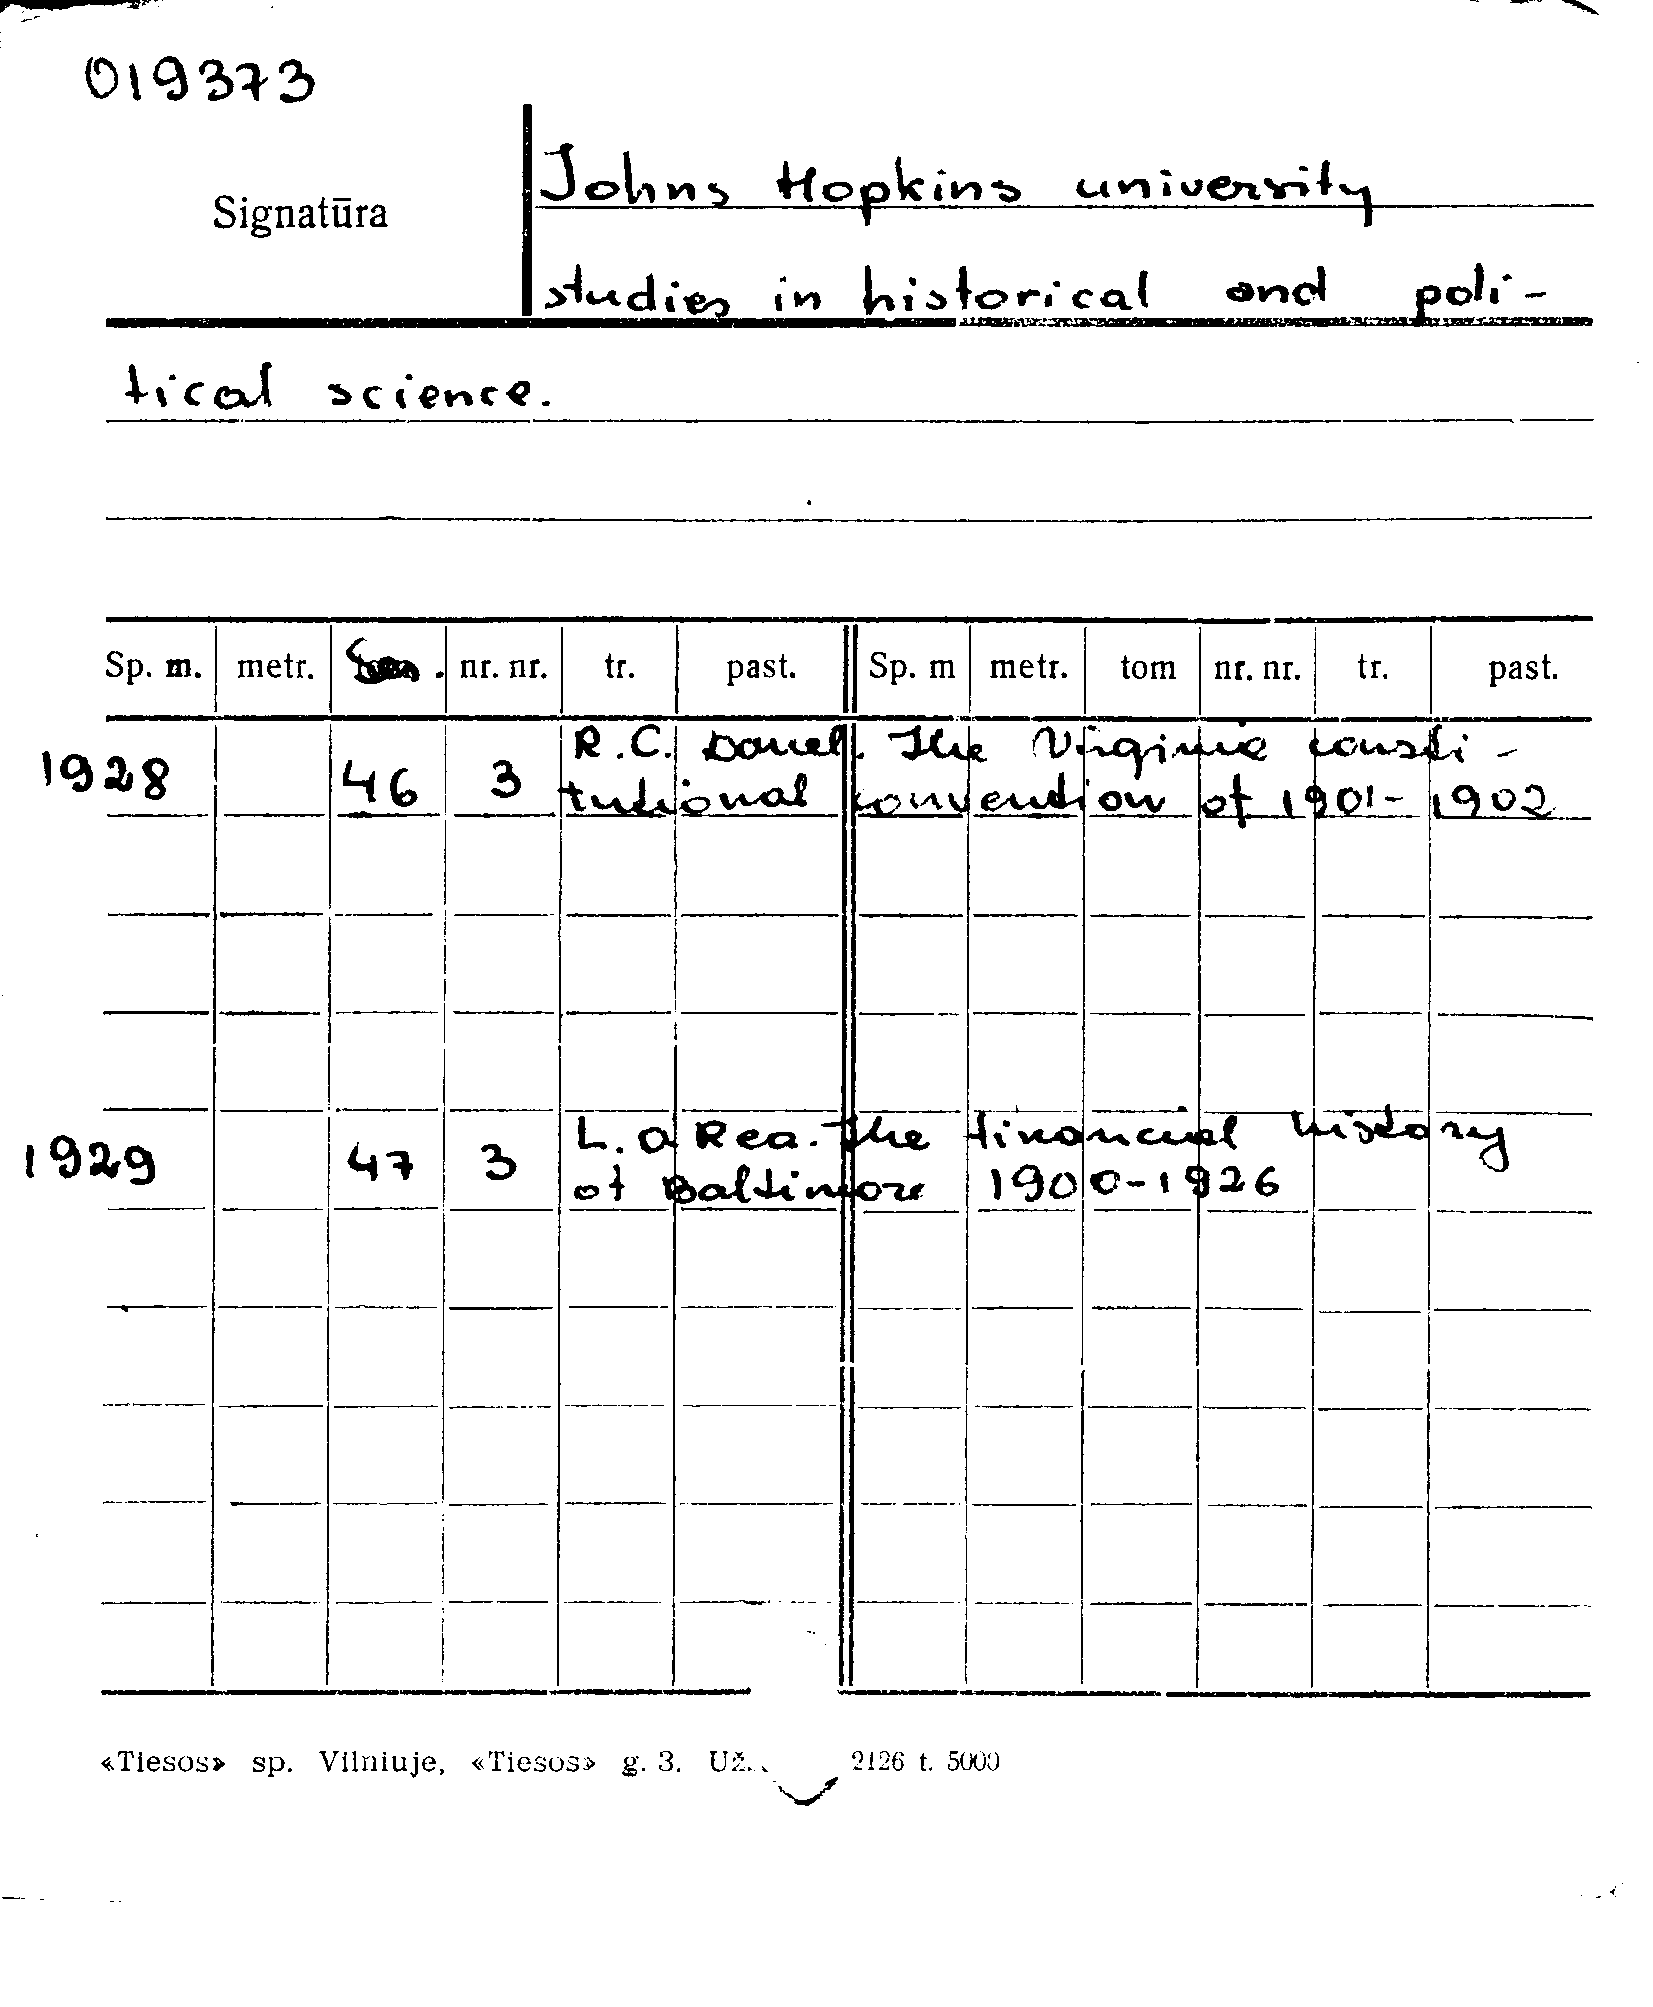 019373
Signatūra
Johns Hopkins university
studies in historical and poli-
tical science.
Sp. m. metr. nr. nr. tr. past. Sp. m metr. tom nr. nr. tr. past.
1928 46 3 R.C. Danel. The Virginia consti-
tutional convention of 1901-1902
1929 47 3 L. O Rea. The financial history
of Baltimore 1900-1926
«Tiesos» sp. Vilniuje, «Tiesos» g. 3. Už. 2126 t. 5000